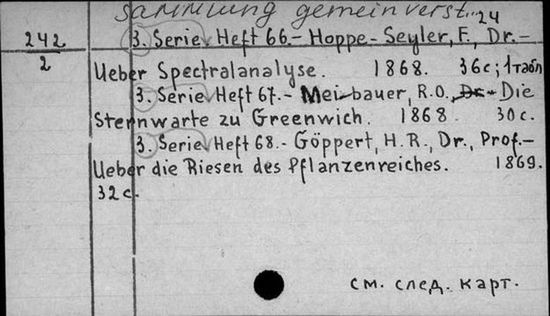 Sammlung gemeinverst... 24
242 3. Serie Heft 66.- Hoppe-Seyler, F., Dr.-
2
Ueber Spectralanalyse. 1868. 36с; 1табл
3. Serie Heft 67.- Meibauer, R.O., Dr.- Die
Sternwarte zu Greenwich. 1868. 30с.
3. Serie Heft 68.- Göppert, H.R., Dr., Prof.-
Ueber die Riesen des Pflanzenreiches. 1869.
32с.
см. след. карт.